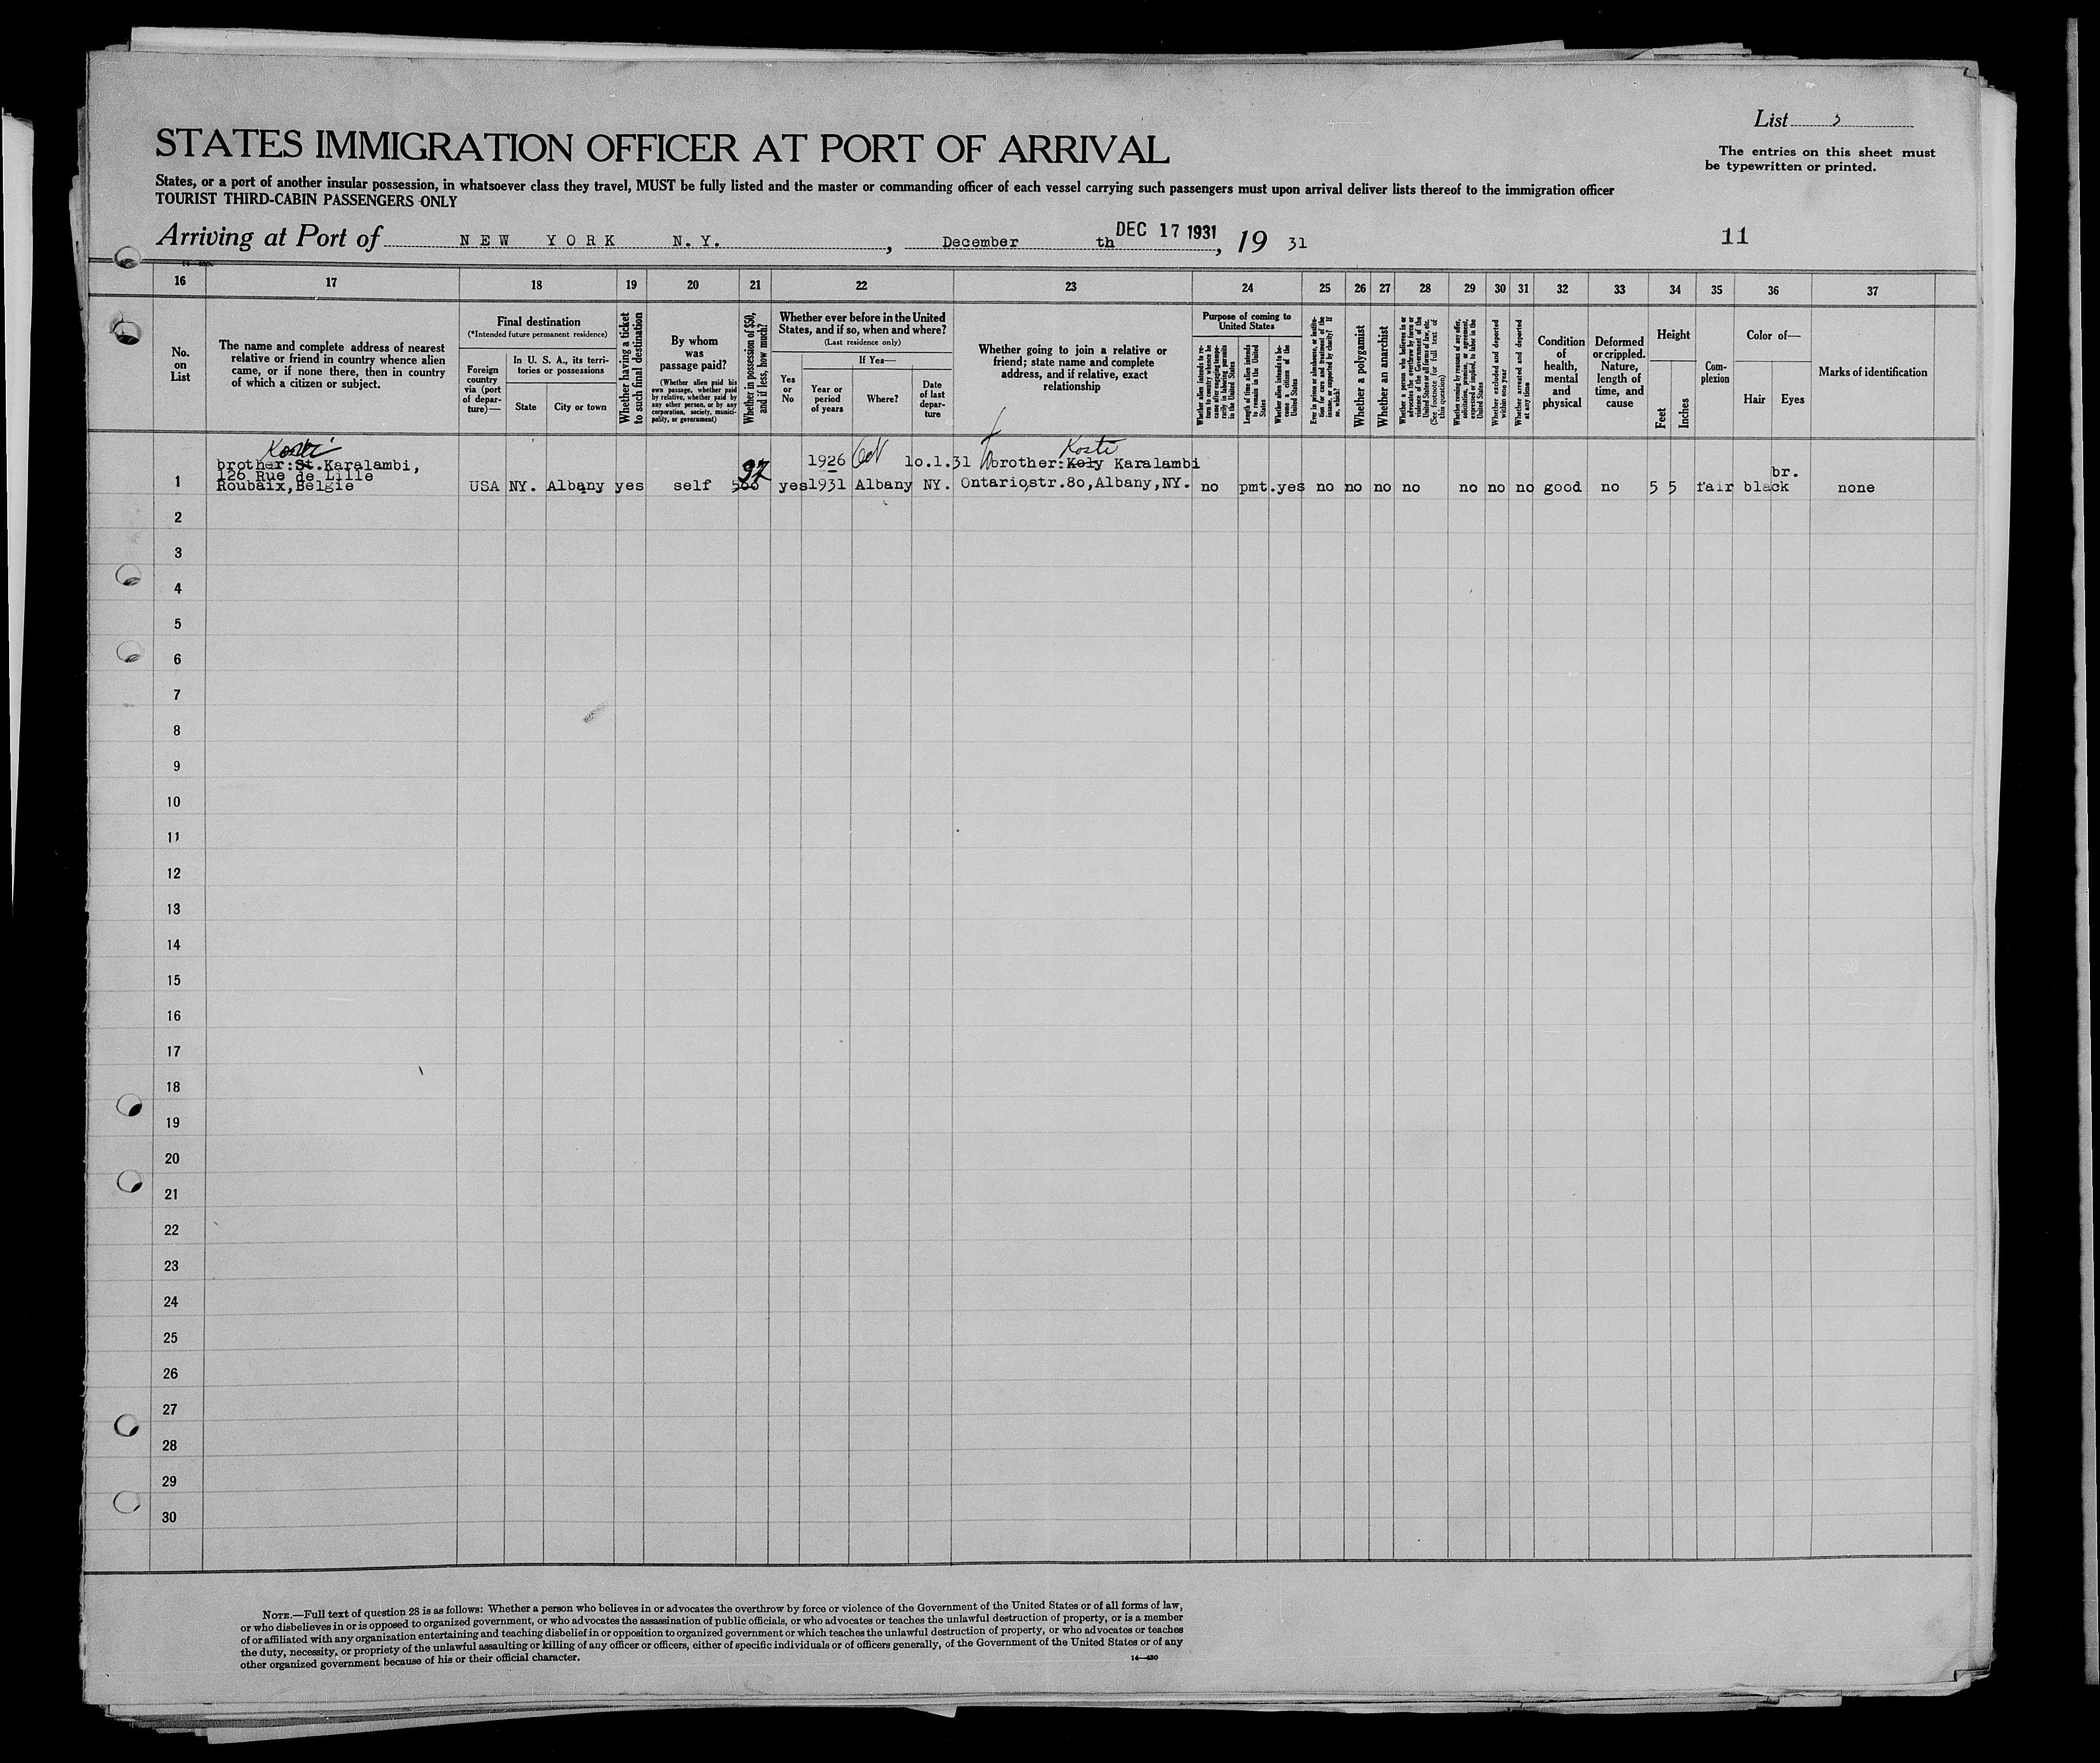 List 3
STATES IMMIGRATION OFFICER AT PORT OF ARRIVAL
The entries on this sheet must
be typewritten or printed.
States, or a port of another insular possession, in whatsoever class they travel, MUST be fully listed and the master or commanding officer of each vessel carrying such passengers must upon arrival deliver lists thereof to the immigration officer
TOURIST THIRD-CABIN PASSENGERS ONLY
Arriving at Port of NEW YORK N.Y., December th DEC 17 1931, 19 31
11
16 17 18 19 20 21 22 23 24 25 26 27 28 29 30 31 32 33 34 35 36 37
No.
on
List
The name and complete address of nearest
relative or friend in country whence alien
came, or if none there, then in country
of which a citizen or subject.
Final destination
(*Intended future permanent residence)
Foreign
country
via (port
of depar-
ture)—
In U. S. A., its terri-
tories or possessions
State
City or town
Whether having a ticket
to such final destination
By whom
was
passage paid?
(Whether alien paid his
own passage, whether paid
by relative, whether paid by
any other person, or by any
corporation, society, munici-
pality, or government)
Whether in possession of $50,
and if less, how much?
Whether ever before in the United
States, and if so, when and where?
(Last residence only)
Yes
or
No
If Yes—
Year or
period
of years
Where?
Date
of last
depar-
ture
Whether going to join a relative or
friend; state name and complete
address, and if relative, exact
relationship
Purpose of coming to
United States
Whether alien intends to re-
turn to country whence he
came after engaging tempo-
rarily in laboring pursuits
in the United States
Length of time alien intends
to remain in the United
States
Whether alien intends to be-
come a citizen of the
United States
Ever in prison or almshouse, or institu-
tion for care and treatment of the
insane, or supported by charity? If
so, which?
Whether a polygamist
Whether an anarchist
Whether a person who believes in or
advocates the overthrow by force or
violence of the Government of the
United States or all forms of law, etc.
(See footnote for full text of
this question)
Whether coming by reasons of any offer,
solicitation, promise, or agreement,
expressed or implied, to labor in the
United States
Whether excluded and deported
within one year
Whether arrested and deported
at any time
Condition
of
health,
mental
and
physical
Deformed
or crippled.
Nature,
length of
time, and
cause
Height
Feet
Inches
Com-
plexion
Color of—
Hair Eyes
Marks of identification
Kosti Kosti
brother: St. Karalambi, 1926 Oct 10.1.31 brother: Koly Karalambi
126 Rue de Lille 92 br.
1 Roubaix, Belgie USA NY. Albany yes self 500 yes 1931 Albany NY. Ontario,str.80,Albany,NY. no pmt. yes no no no no no no no good no 5 5 fair black none
2
3
4
5
6
7
8
9
10
11
12
13
14
15
16
17
18
19
20
21
22
23
24
25
26
27
28
29
30
NOTE.—Full text of question 28 is as follows: Whether a person who believes in or advocates the overthrow by force or violence of the Government of the United States or of all forms of law,
or who disbelieves in or is opposed to organized government, or who advocates the assassination of public officials, or who advocates or teaches the unlawful destruction of property, or is a member
of or affiliated with any organization entertaining and teaching disbelief in or opposition to organized government or which teaches the unlawful destruction of property, or who advocates or teaches
the duty, necessity, or propriety of the unlawful assaulting or killing of any officer or officers, either of specific individuals or of officers generally, of the Government of the United States or of any
other organized government because of his or their official character.
14—430